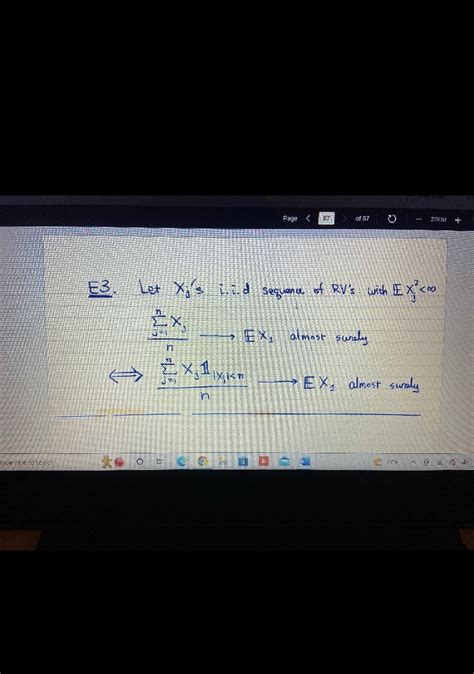 Page < 87 > of 87 - ZOOM +
E3. Let Xj's i.i.d sequence of RV's with 𝔼 Xj² < ∞
∑ⱼ₌₁ⁿ Xj / n → 𝔼 X₁ almost surely
⟺ ∑ⱼ₌₁ⁿ Xj 𝟙|Xj|<n / n → 𝔼 X₁ almost surely